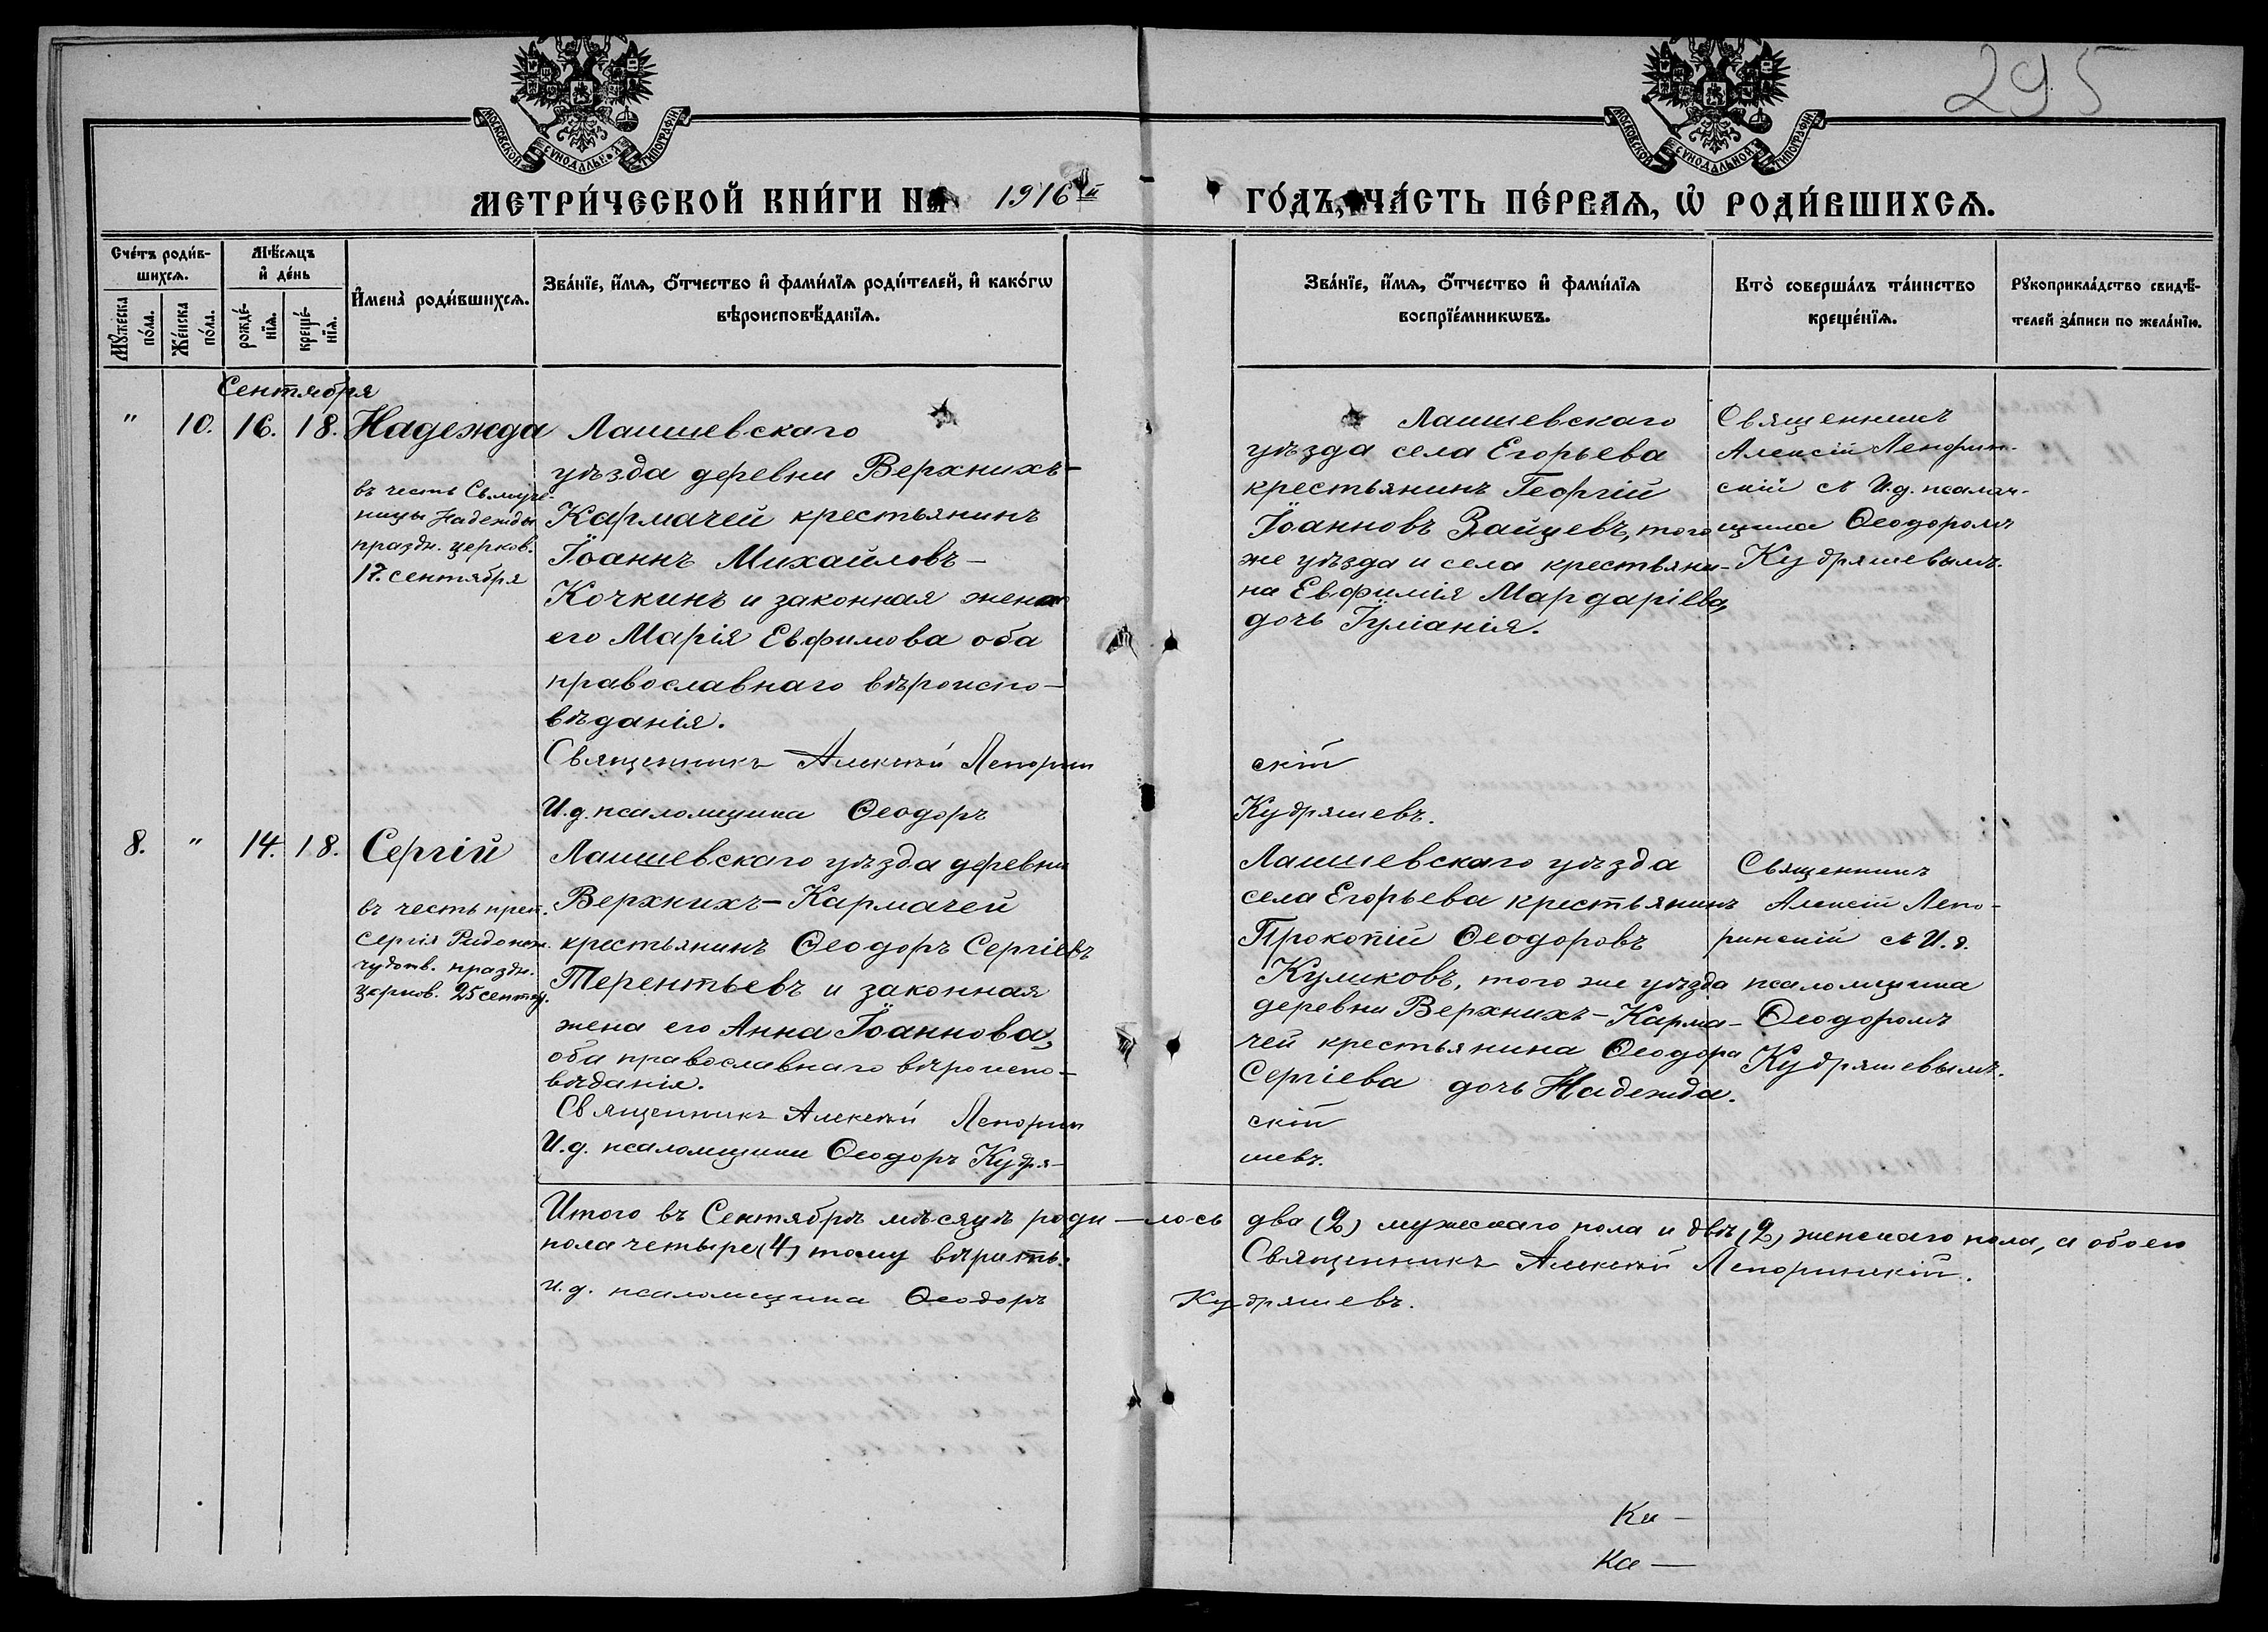 295
МОСКОВСКОЙ СѴНОДАЛЬНОЙ ТИПОГРАФІИ
МОСКОВСКОЙ СѴНОДАЛЬНОЙ ТИПОГРАФІИ
МЕТРИ́ЧЕСКОЙ КНИ́ГИ НА 1916й ГО́ДЪ, ЧА́СТЬ ПЕ́РВАѦ, Ѽ РОДИ́ВШИХСѦ.
Сче́тъ роди́в-
шихсѧ.
Мꙋ́жеска по́ла.
Же́нска по́ла.
Мѣ́сѧцъ
и҆ де́нь
рожде́-
нїѧ.
креще́-
нїѧ.
И҆мена̀ роди́вшихсѧ.
Зва́нїе, и҆́мѧ, ѻ҆́тчество и҆ фами́лїѧ роди́телей, и҆ како́гѡ
вѣроисповѣ́данїѧ.
Зва́нїе, и҆́мѧ, ѻ҆́тчество и҆ фами́лїѧ
воспрїе́мникѡвъ.
Кто̀ соверша́лъ та́инство
креще́нїѧ.
Рꙋкоприкла́дство свидѣ́-
телей за́писи по жела́нїю.
Сентября
" 10. 16. 18. Надежда
въ честь Св. муче-
ницы Надежды
праздн. церков.
17. сентября
Лаишевскаго
уѣзда деревни Верхнихъ-
Кармачей крестьянинъ
Іоаннъ Михайловъ-
Кочкинъ и законная жена
его Марія Евфимова оба
православнаго вѣроиспо-
вѣданія.
Священникъ Алексѣй Лепорин
скій
И.д. псаломщика Ѳеодоръ
Кудряшевъ.
Лаишевскаго
уѣзда села Егорьева
крестьянинъ Георгій
Іоанновъ Зайцевъ, того
же уѣзда и села крестьяни-
на Евфимія Маргаріева,
дочь Іуліанія.
Священникъ
Алексій Лепорин-
скій съ И.д. псалом-
щика Ѳеодоромъ
Кудряшевымъ.
8. " 14. 18. Сергій
въ честь преп.
Сергія Радонеж.
чудотв. праздн.
церков. 25 сентяб.
Лаишевскаго уѣзда деревни
Верхнихъ-Кармачей
крестьянинъ Ѳеодоръ Сергіевъ
Терентьевъ и законная
жена его Анна Іоаннова,
оба православнаго вѣроиспо-
вѣданія.
Священникъ Алексѣй Лепорин
скій
И.д. псаломщика Ѳеодоръ Кудря-
шевъ.
Лаишевскаго уѣзда
села Егорьева крестьянинъ
Прокопій Ѳеодоровъ
Куликовъ, того же уѣзда
деревни Верхнихъ-Карма-
чей крестьянина Ѳеодора
Сергіева дочь Надежда.
Священникъ
Алексій Лепо-
ринскій съ И.д.
псаломщика
Ѳеодоромъ
Кудряшевымъ.
Итого въ Сентябрѣ мѣсяцѣ роди-лось два (2) мужескаго пола и двѣ (2) женскаго пола, а обоего
пола четыре (4) тому вѣрить. Священникъ Алексѣй Лепоринскій.
И.д. псаломщика Ѳеодоръ Кудряшевъ.
Ка-
Ка-